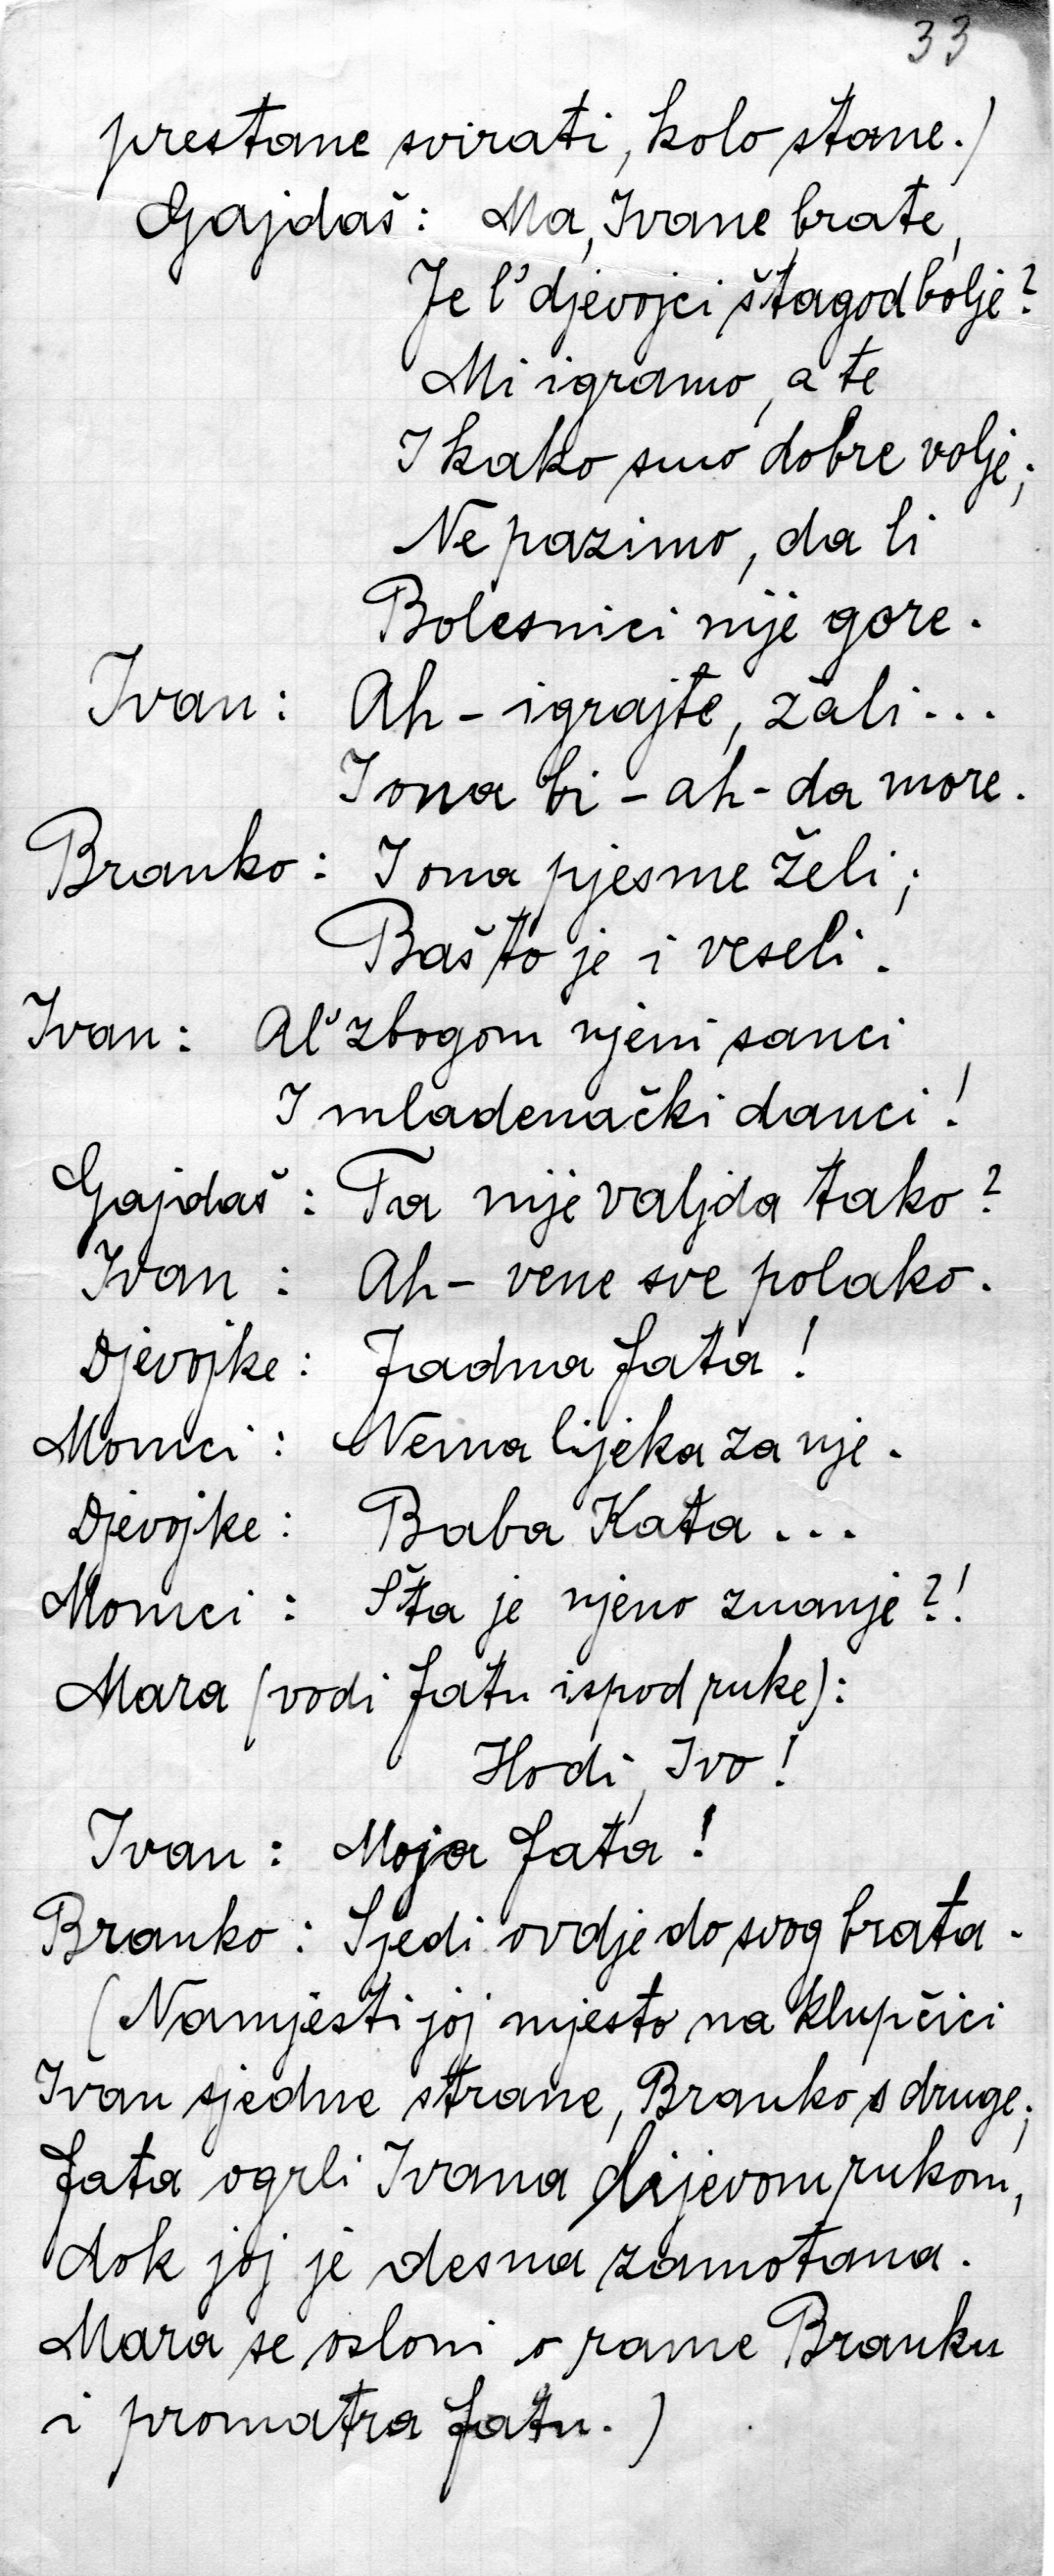 33
prestane svirati, kolo stane.)
Gajdaš: Ma, Ivane brate,
Je l' djevojci štagod bolje?
Mi igramo, a te
I kako smo dobre volje;
Ne pazimo, da li
Bolesnici nije gore.
Ivan: Ah - igrajte, žali...
I ona bi - ah - da more.
Branko: I ona pjesme želi;
Baš to je i veseli.
Ivan: Al' zbogom njeni sanci
I mladenački danci!
Gajdaš: Ta nije valjda tako?
Ivan: Ah - vene sve polako.
Djevojke: Jadna Fata!
Momci: Nema lijeka za nje.
Djevojke: Baba Kata...
Momci: Šta je njeno znanje?!
Mara (vodi Fatu ispod ruke):
Hodi, Ivo!
Ivan: Moja Fata!
Branko: Sjedi ovdje do svog brata.
(Namjesti joj mjesto na klupčici
Ivan sjedne strane, Branko s druge;
Fata ogrli Ivana lijevom rukom,
dok joj je desna zamotana.
Mara se osloni o rame Branku
i promatra Fatu.)